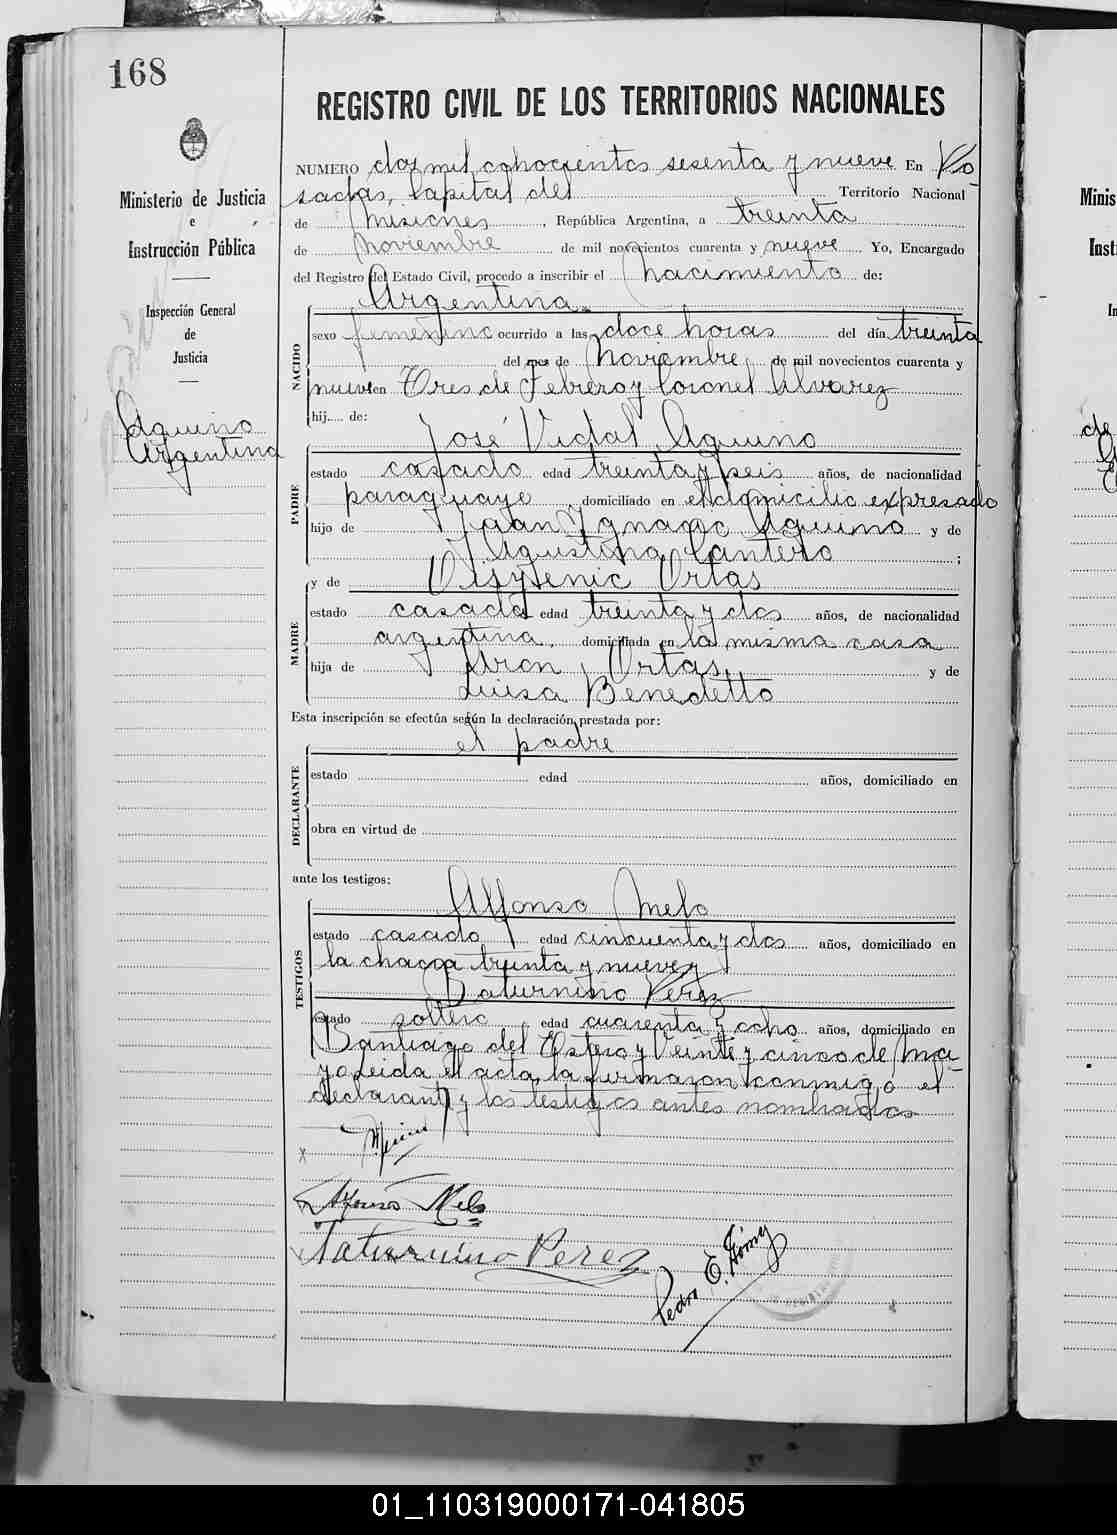 168
REGISTRO CIVIL DE LOS TERRITORIOS NACIONALES
Ministerio de Justicia
e
Instrucción Pública
Inspección General
de
Justicia
Aquino
Argentina
NUMERO dos mil cohocientos sesenta y nueve En Po-
sadas, Capital del Territorio Nacional
de Misiones, República Argentina, a treinta
de noviembre de mil novecientos cuarenta y nueve Yo, Encargado
del Registro del Estado Civil, procedo a inscribir el nacimiento de:
Argentina.
NACIDO
sexo femenino ocurrido a las doce horas del día treinta
del mes de Noviembre de mil novecientos cuarenta y
nueve en Tres de Febrero y Coronel Alvarez
hij.... de:
José Vidal Aquino
PADRE
estado casado edad treinta y seis años, de nacionalidad
paraguayo domiciliado en el domicilio expresado
hijo de Juan Ygnacio Aquino y de
Agustina Cantero ;
y de Ortas
MADRE
estado casada edad treinta y dos años, de nacionalidad
argentina, domiciliada en la misma casa
hija de Ortas y de
Luisa Benedetto
Esta inscripción se efectúa según la declaración prestada por:
el padre
DECLARANTE
estado edad años, domiciliado en
obra en virtud de
ante los testigos:
Alfonso Melo
TESTIGOS
estado casado edad cincuenta y dos años, domiciliado en
la chacra treinta y nueve y
Saturnino Perez
estado soltero edad cuarenta y coho años, domiciliado en
Santiago del Estero y Veinte y cinco de Ma-
yo Leida el acta, la firmaron conmigo el
declarante y los testigos antes nombrados
x
Alfonso Melo
Saturnino Perez
Pedro E.
Minis
Inst
In
de
01_110319000171-041805